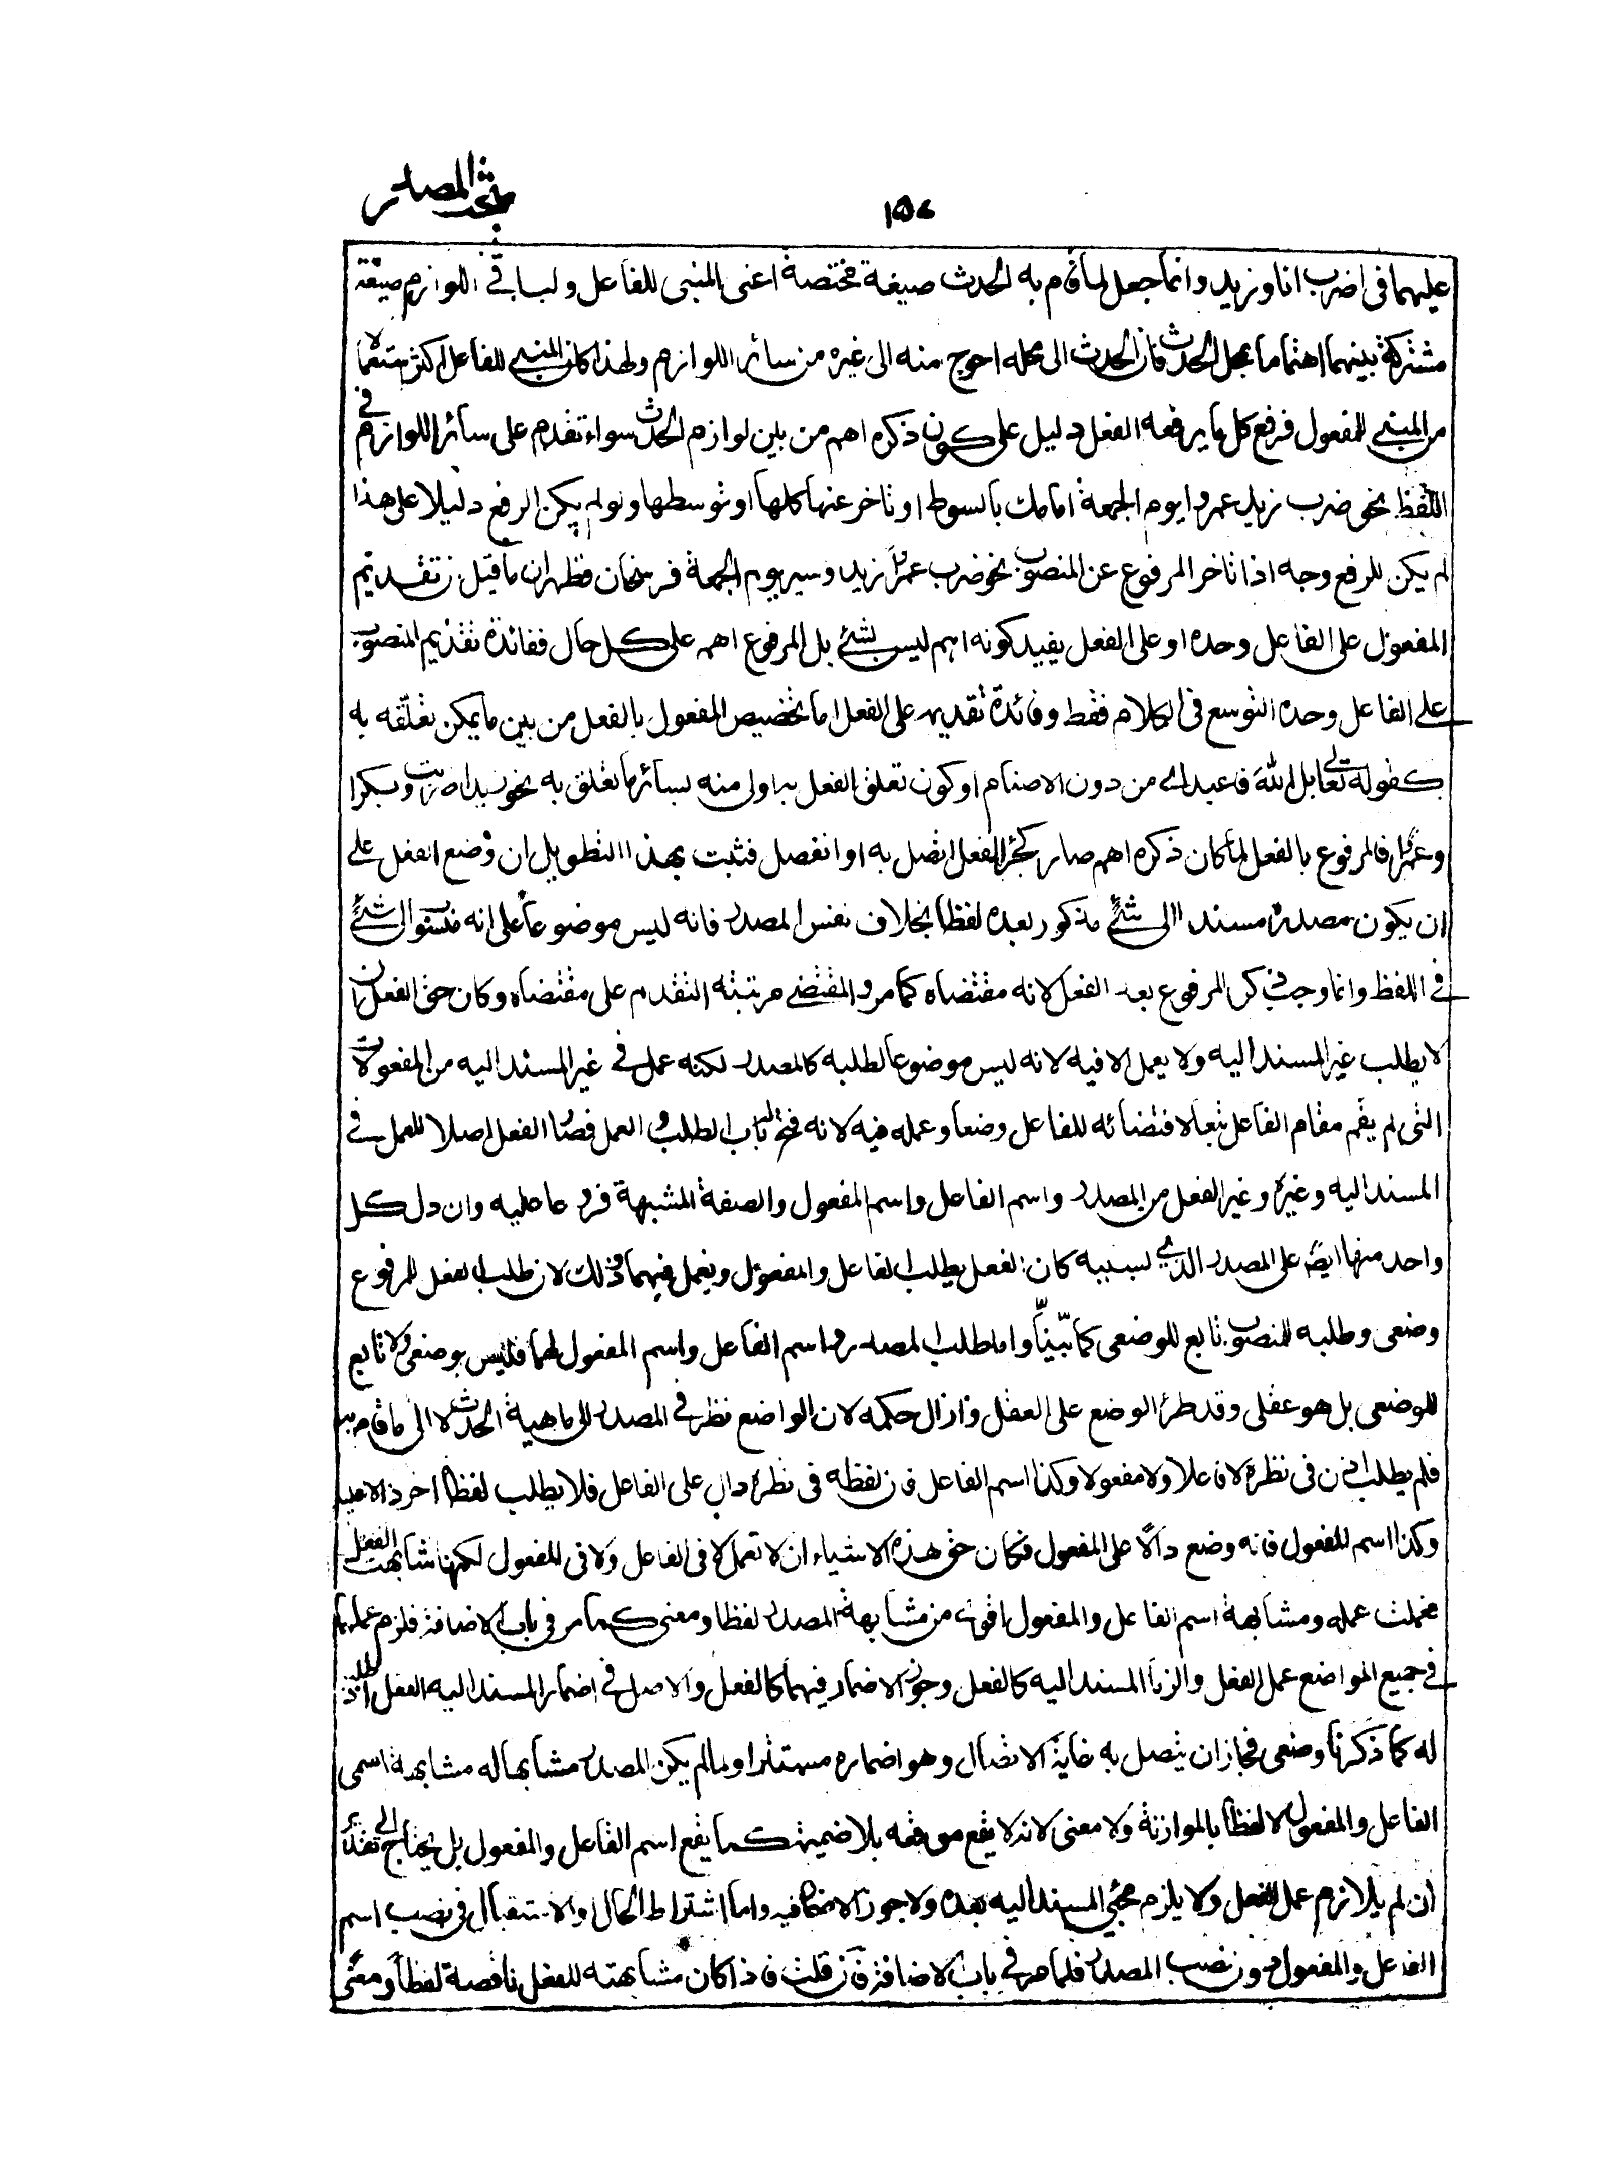 بحث المصدر
١٥٤
عليهما فى اضرب انا وزيد وانما جعل لما قام به الحدث صيغة مختصة اعنى المبنى للفاعل ولباقى اللوازم صيغة
مشتركة بينهما اهتماما بمحل الحدث فان الحدث الى محله احوج منه الى غيره من سائر اللوازم ولهذا كان المبنى للفاعل اكثر استعمالا
من المبنى للمفعول فرفع كل ما يرفعه الفعل دليل على كون ذكره اهم من بين لوازم الحدث سواء تقدم على سائر اللوازم فى
اللفظ نحو ضرب زيد عمروا يوم الجمعة امامك بالسوط او تاخر عنها كلها او توسطها ولو لم يكن الرفع دليلا على هذا
لم يكن للرفع وجه اذا تاخر المرفوع عن المنصوب نحو ضرب عمرا زيد وسير يوم الجمعة فرسخان فظهر ان ما قيل ان تقديم
المفعول على الفاعل وحده او على الفعل يفيد كونه اهم ليس بشئ بل المرفوع اهم على كل حال ففائدة تقديم المنصوب
على الفاعل وحده التوسع فى الكلام فقط وفائدة تقديمه على الفعل اما تخصيص المفعول بالفعل من بين ما يمكن تعلقه به
كقوله تعالى بل الله فاعبد اى من دون الاصنام او كون تعلق الفعل به اولى منه بسائر ما تعلق به نحو زيدا ضربت وبكرا
وعمرا فالمرفوع بالفعل لما كان ذكره اهم صار كجزء الفعل اتصل به او انفصل فثبت بهذا التطويل ان وضع الفعل على
ان يكون مصدره مسندا الى شئ مذكور بعده لفظا بخلاف نفس المصدر فانه ليس موضوعا على انه منسوب الى شئ
فى اللفظ وانما وجب ذكر المرفوع بعد الفعل لانه مقتضاه كما مر والمقتضى مرتبته التقدم على مقتضاه وكان حق الفعل ان
لا يطلب غير المسند اليه ولا يعمل الا فيه لانه ليس موضوعا لطلبه كالمصدر لكنه عمل فى غير المسند اليه من المفعولات
التى لم يقم مقام الفاعل تبعا لاقتضائه للفاعل وضعا وعمله فيه لانه فتح له باب الطلب والعمل فصار الفعل اصلا للعمل فى
المسند اليه وغيره وغير الفعل من المصدر واسم الفاعل واسم المفعول والصفة المشبهة فرعا عليه وان دل كل
واحد منها ايضا على المصدر الذى بسببه كان الفعل يطلب الفاعل والمفعول ويعمل فيهما وذلك لان طلب الفعل للمرفوع
وضعى وطلبه للمنصوب تابع للوضعى كما بينا واما طلب المصدر واسم الفاعل واسم المفعول لهما فليس بوضعى ولا تابع
للوضعى بل هو عقلى وقد طرأ الوضع على العقل وازال حكمه لان الواضع نظر فى المصدر الى ماهية الحدث لا الى ما قام به
فلم يطلب اذن فى نظره لا فاعلا ولا مفعولا وكذا اسم الفاعل فان لفظه فى نظره دال على الفاعل فلا يطلب لفظا اخر دالا عليه
وكذا اسم المفعول فانه وضع دالا على المفعول فكان حق هذه الاشياء ان لا تعمل لا فى الفاعل ولا فى المفعول لكنها شابهت الفعل
فعملت عمله ومشابهة اسم الفاعل والمفعول اقوى من مشابهة المصدر لفظا ومعنى كما مر فى باب الاضافة فلزم عملهما
فى جميع المواضع عمل الفعل والزما المسند اليه كالفعل وجوز الاضمار فيهما كالفعل والاصل فى اضمار المسند اليه الفعل اذ طلبه
له كما ذكرنا وضعى فجاز ان يتصل به غاية الاتصال وهو اضماره مستترا ولما لم يكن المصدر مشابها له مشابهة اسمى
الفاعل والمفعول لا لفظا بالموازنة ولا معنى لانه لا يقع موقعه بلا ضميمة كما يقع اسم الفاعل والمفعول بل يحتاج الى تقدير
ان لم يلازم عمل الفعل ولا يلزم مجئ المسند اليه بعده ولا جوز الاضمار فيه واما اشتراط الحال والاستقبال فى نصب اسم
الفاعل والمفعول دون نصب المصدر فلما مر فى باب الاضافة فان قلت فاذا كان مشابهته للفعل ناقصة لفظا ومعنى